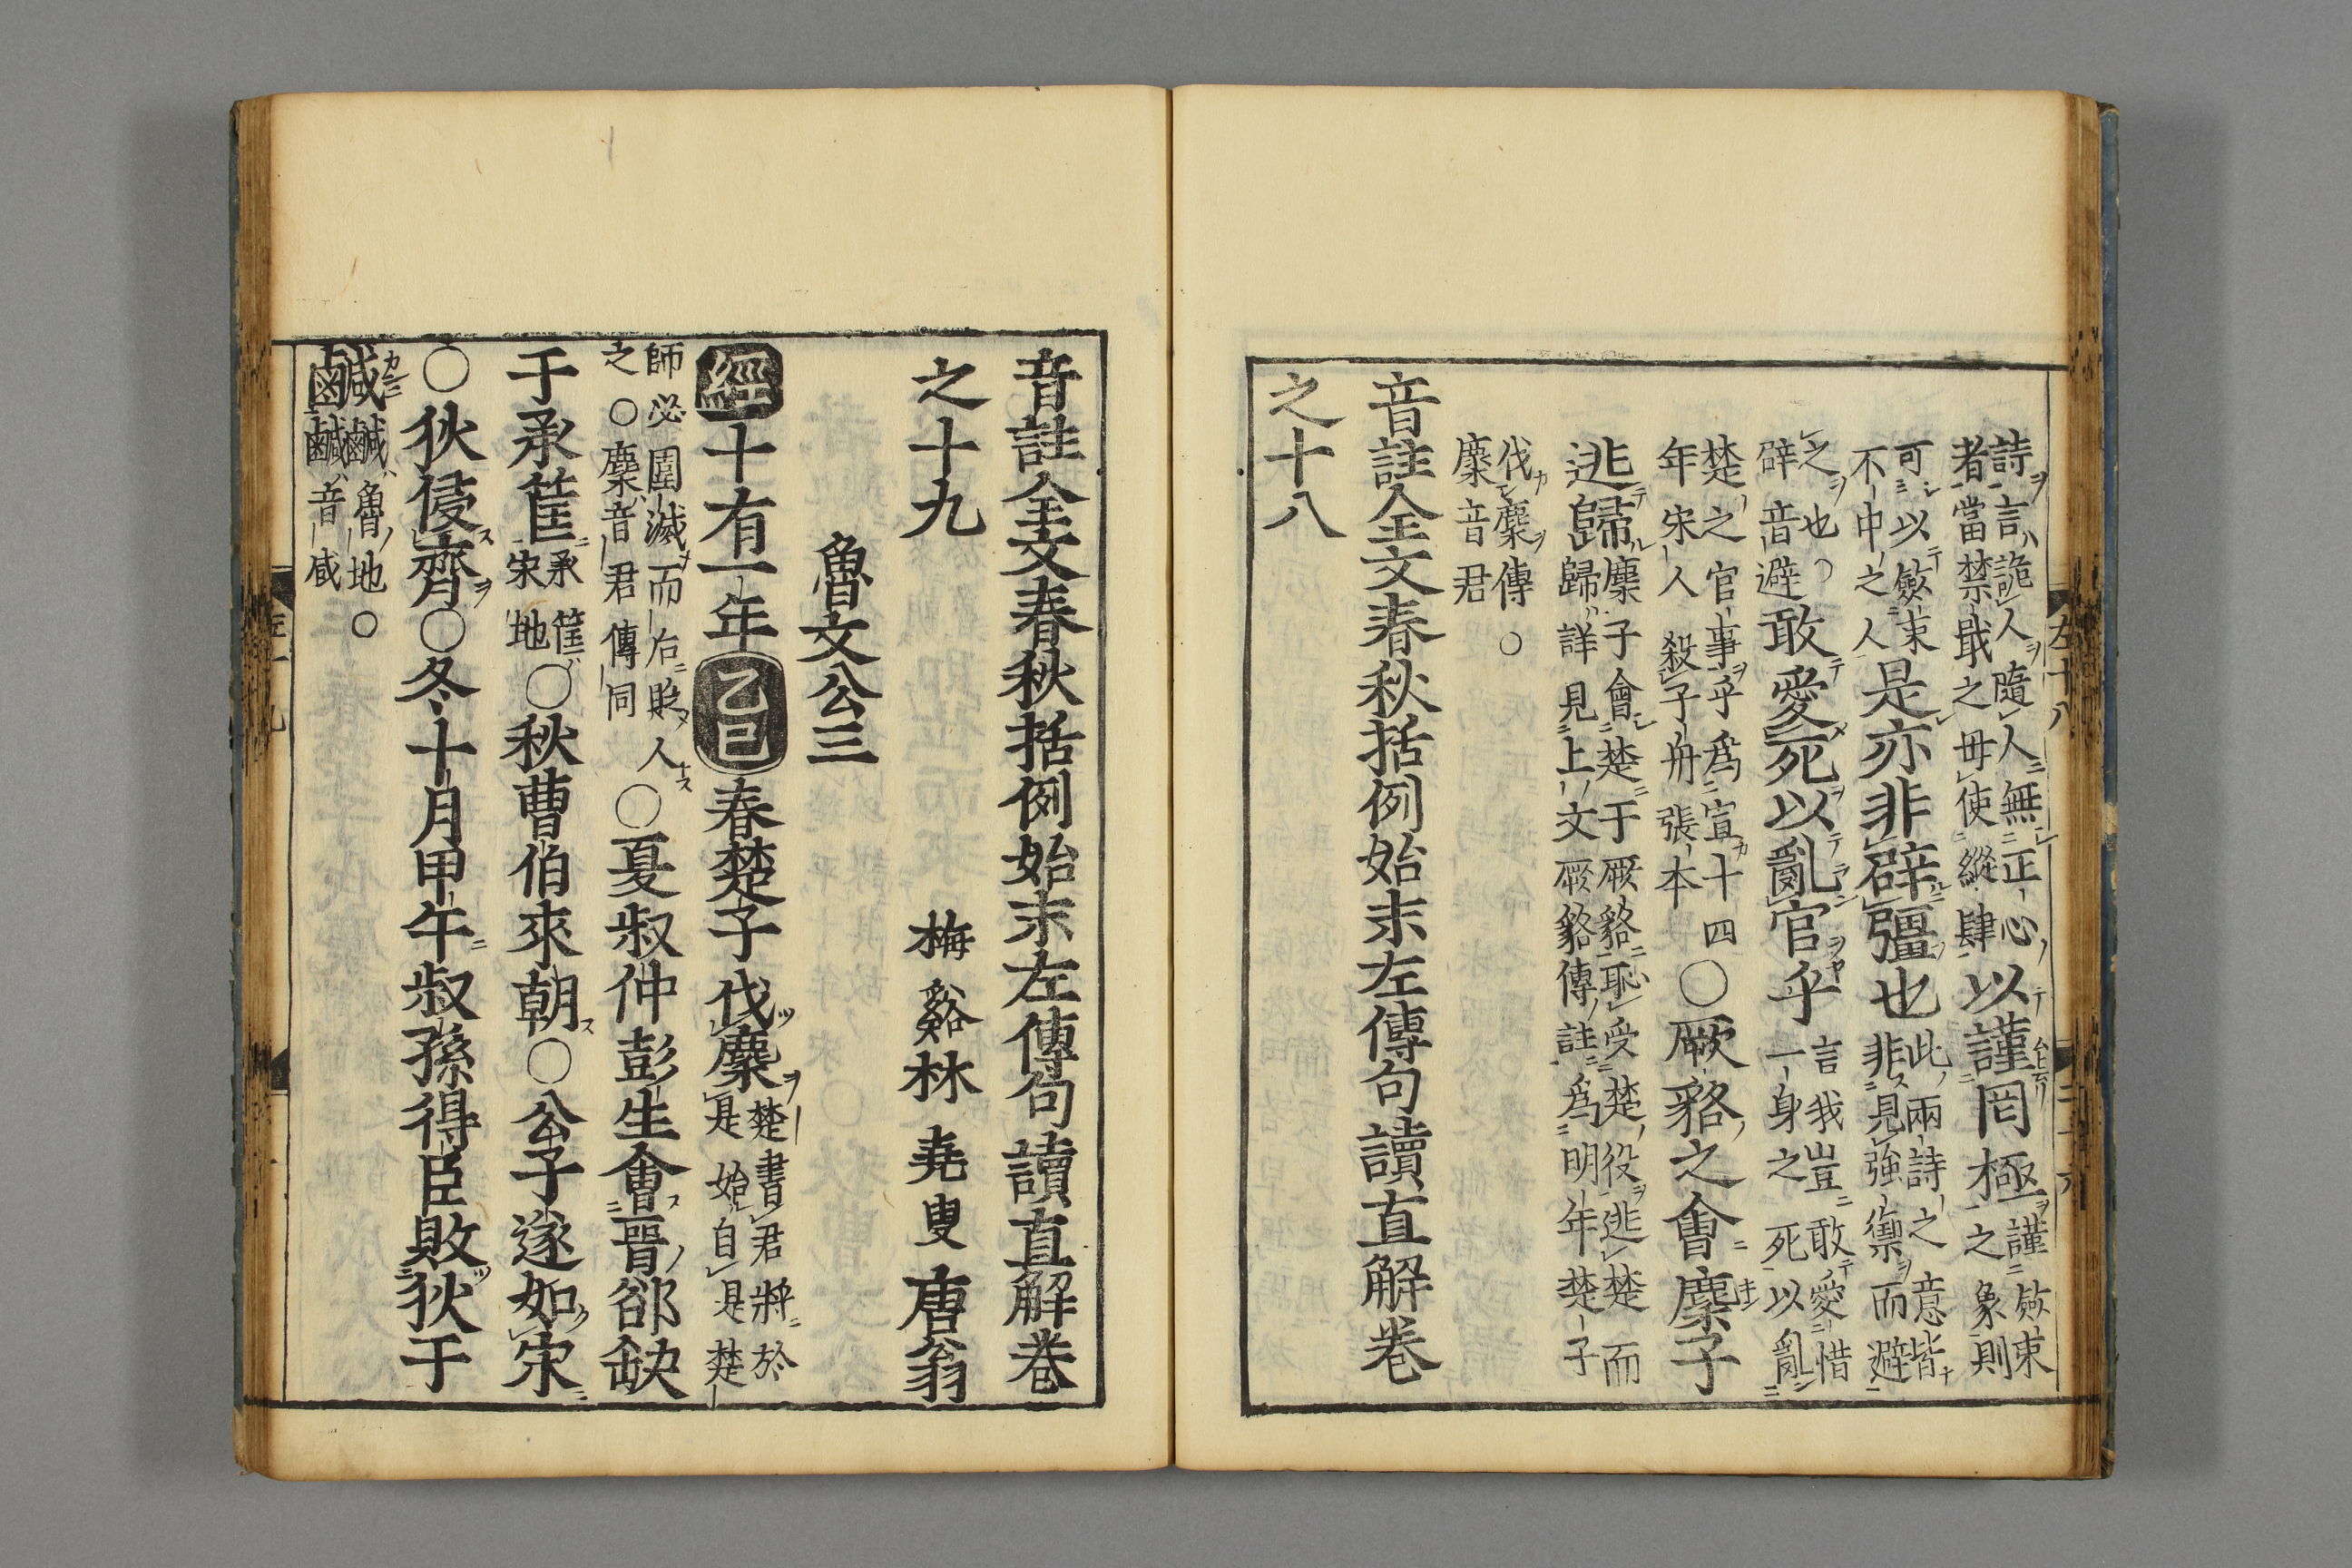 詩言詭人隨人無正心
者當禁戢之毋使縱肆
以謹罔極
謹斂束
之象則
可以斂束
不中之人
是亦非辟彊也
此兩詩之意皆
非見強禦而避
之也○
辟音避
敢愛死以亂官乎
言我豈敢愛惜
一身之死以亂
楚之官事乎爲宣十四
年宋人殺子舟張本
○厥貉之會麇子
逃歸
麇子會楚于厥貉恥受楚役逃楚而
歸詳見上文厥貉傳註爲明年楚子
伐麇傳○
麇音君
音註全文春秋括例始末左傳句讀直解卷
之十八
左十八
音註全文春秋括例始末左傳句讀直解卷
之十九
梅谿林堯叟唐翁
魯文公三
經十有一年乙巳春楚子伐麇
楚書君將於
是始自是楚
師必圍滅而后貶人
之○麇音君傳同
○夏叔仲彭生會晉郤缺
于承筐
承筐
宋地
○秋曹伯來朝○公子遂如宋
○狄侵齊○冬十月甲午叔孫得臣敗狄于
鹹
鹹魯地○
鹹音咸